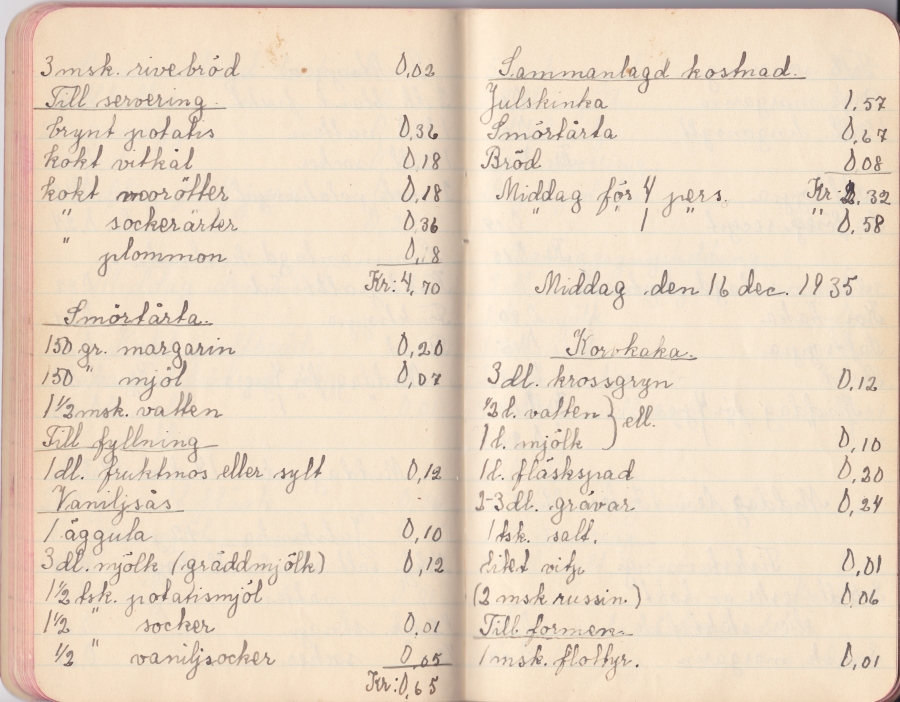 3 msk. rivebröd 0,02
Till servering.
brynt potatis 0,36
kokt vitkål 0,18
kokt morötter 0,18
" sockerärter 0,36
" plommon 0,18
Kr: 4,70
Smörtårta.
150 gr. margarin 0,20
150 " mjöl 0,07
1 1/2 msk. vatten
Till fyllning
1 dl. fruktmos eller sylt 0,12
Vaniljsås
1 äggula 0,10
3 dl. mjölk (gräddmjölk) 0,12
1 1/2 tsk. potatismjöl
1 1/2 " socker 0,01
1/2 " vaniljsocker 0,05
Kr: 0,65
Sammanlagd kostnad.
Julskinka 1,57
Smörtårta 0,67
Bröd 0,08
Middag för 4 pers. Kr: 2,32
" " 1 " " 0,58
Middag den 16 dec. 1935
Korvkaka.
3 dl. krossgryn 0,12
1/2 l. vatten } ell.
1 l. mjölk 0,10
1 l. fläskspad 0,20
2-3 dl. grävar 0,24
1 tsk. salt.
litet vitp. 0,01
(2 msk russin.) 0,06
Till formen.
1 msk. flottyr. 0,01